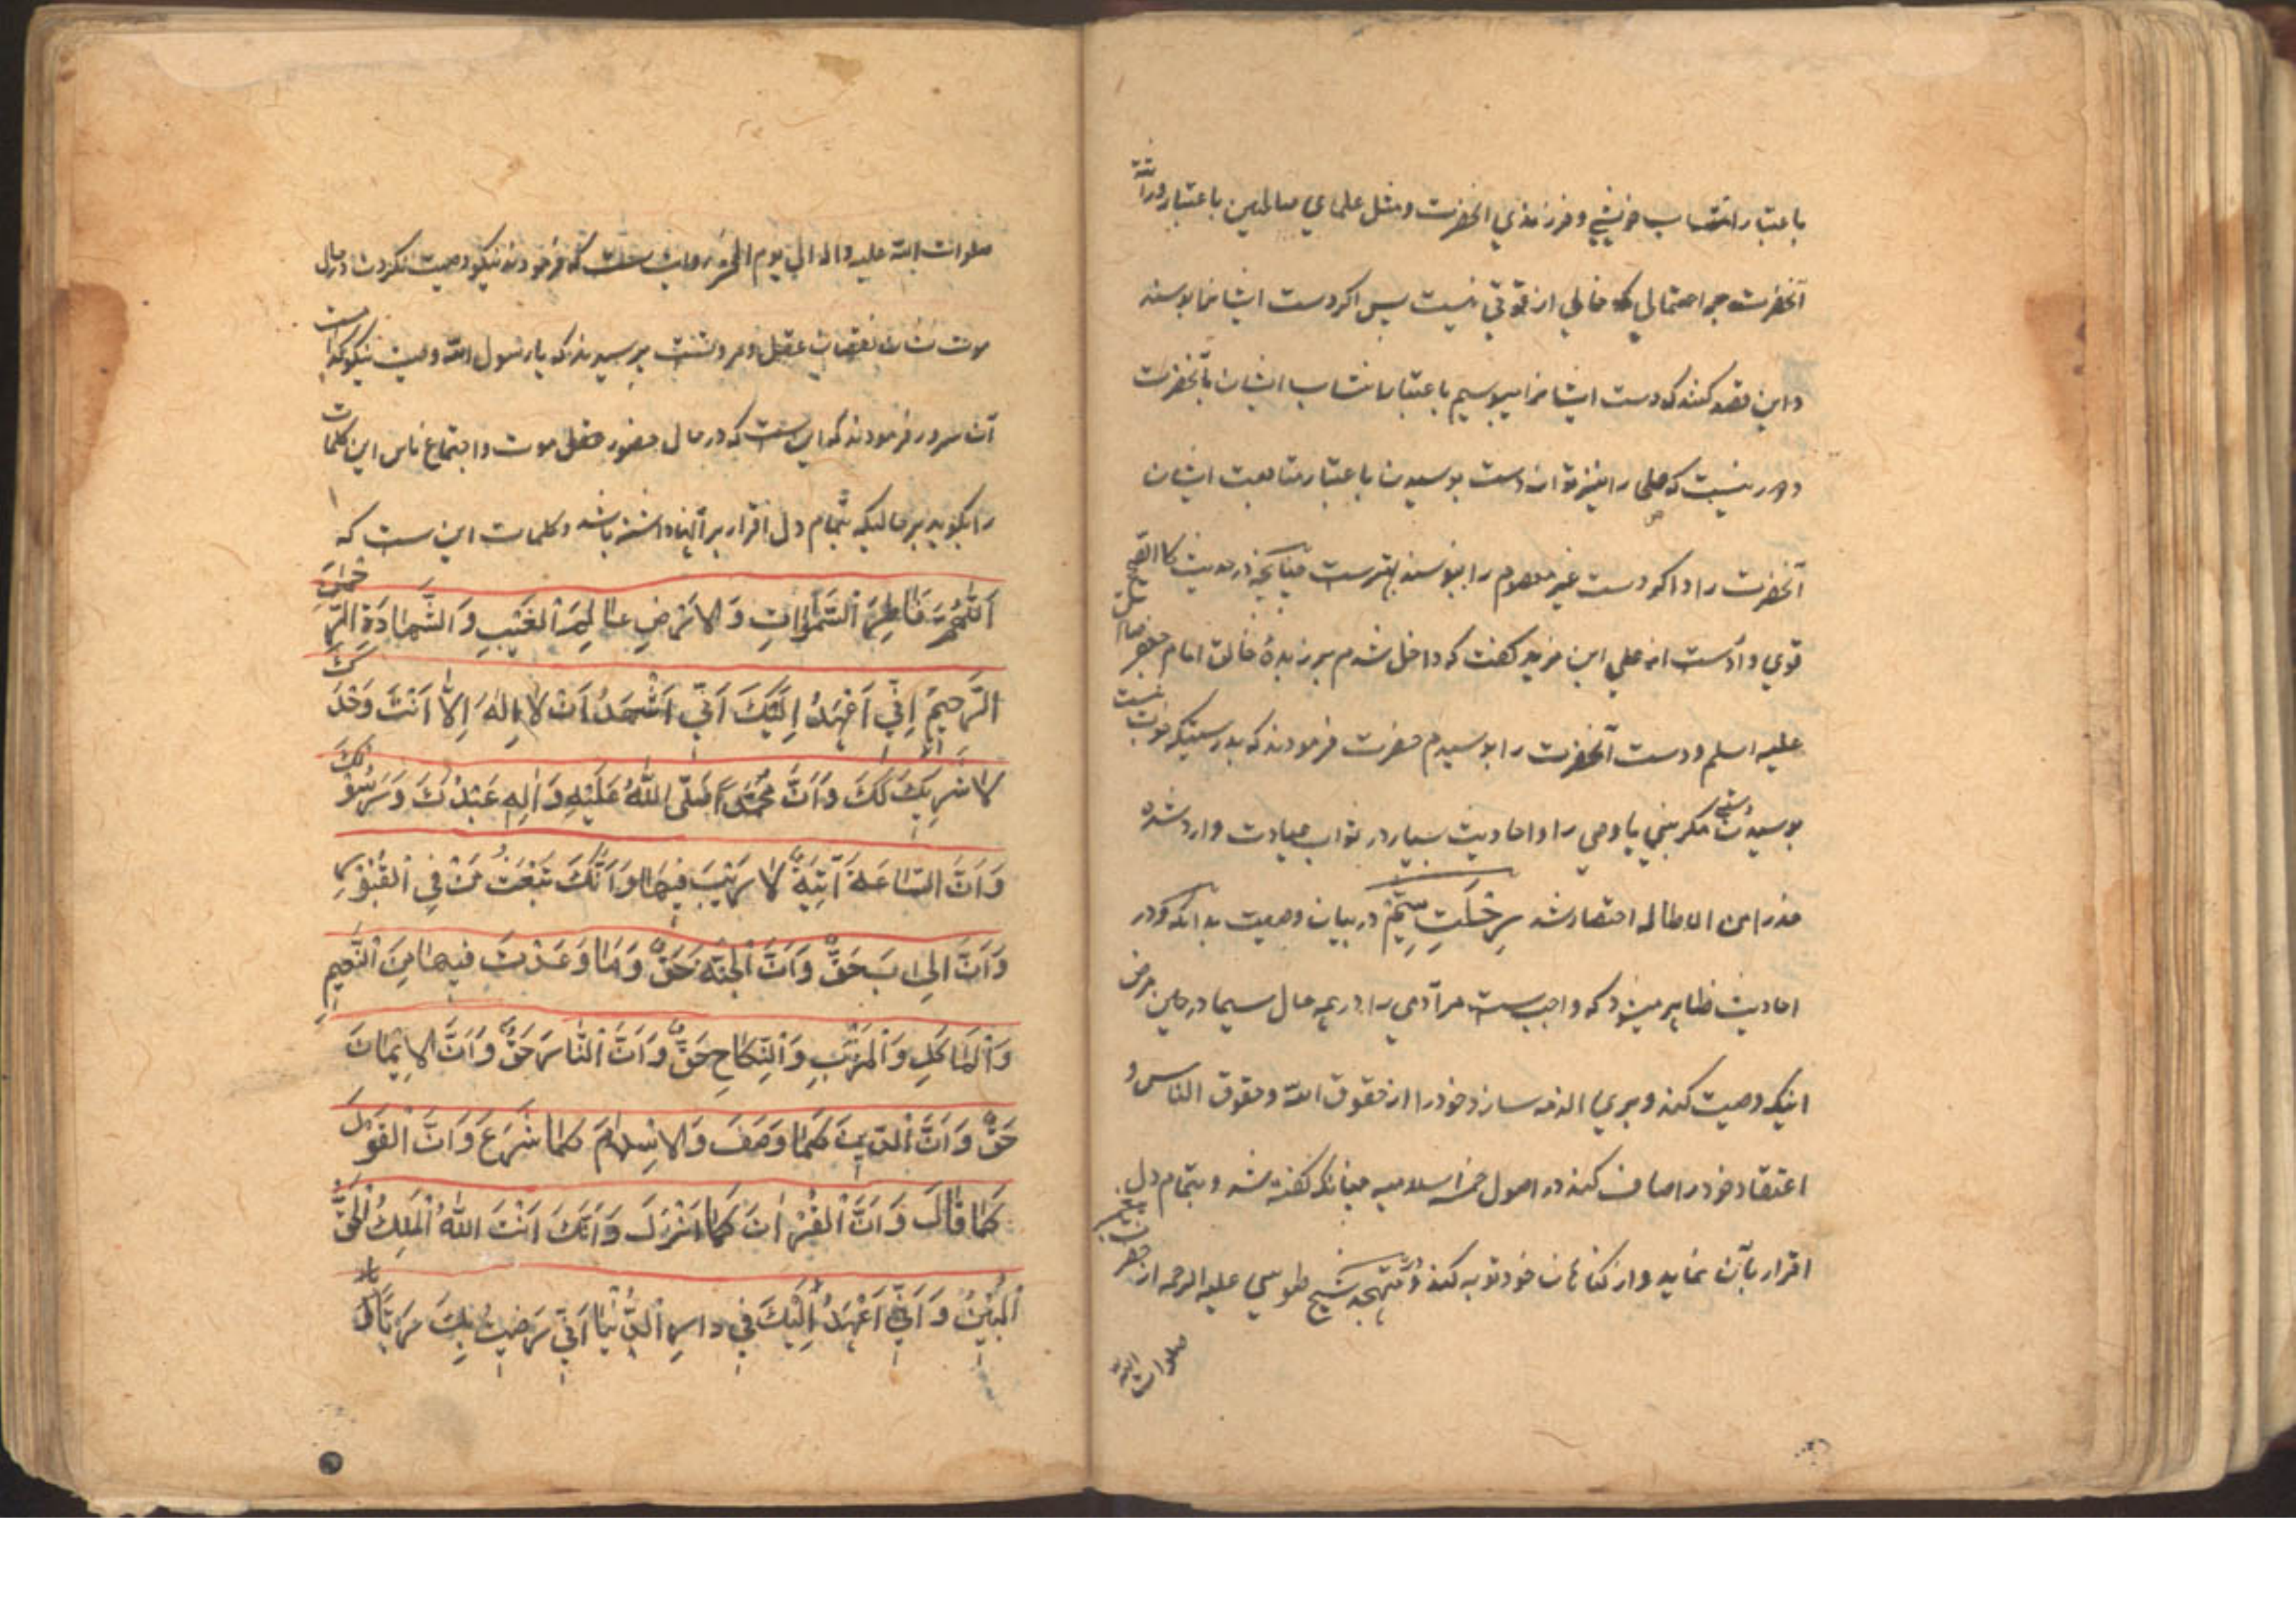 باعتبار انتساب خویشی و فرزندی انحضرت و مثل علمای صالحین باعتبار وراثت
آنحضرت چرا احتمالی که خالی از قوتی نیست پس اکر دست ایشانرا بوسند
و این قصد کنند که دست ایشانرا میبوسیم باعتبار انتساب ایشان بآنحضرت
دور نیست که صلحا را نیز توان دست بوسیدن باعتبار متابعت ایشان
آنحضرت را و اکر دست غیر معصوم را نبوسند بهترست چنانچه در حدیث کالصحیح
قوی وارد است از علی ابن مزید کفت که داخل شدم بر زبدهٔ خالق امام جعفر صادق
علیه السلم و دست آنحضرت را بوسیدم حضرت فرمودند که بدرستیکه خوب نیست
بوسیدن دستی مکر بنبی یا وصی را و احادیث بسیار در ثواب عیادت وارد شده
حذرا من الاطاله اختصار شد سرخلت ستیم در بیان وصیت بدانکه در
احادیث ظاهر میشود که واجبست مر آدمی را در همه حال سیما در حین مرض
اینکه وصیت کند و بریء الذمه سازد خود را از حقوق الله و حقوق الناس و
اعتقاد خود را صاف کند در اصول خمسه اسلامیه چنانکه کفته شد و بتمام دل
اقرار بآن نماید و از کناهان خود توبه کند و در متهجد شیخ طوسی علیه الرحمه از حضرت پیغمبر
صلوات الله
صلوات الله علیه واله الی یوم الجزا روایتست که فرمودند نیکو وصیت نکردن در حال
موت نشان نقصان عقل و مروتست پرسیدند که یا رسول الله وصیت نیکو کدامست
آن سرور فرمودند که اینست که در حال حضور موت و اجتماع ناس این کلمات
را بکوید بر حالیکه بتمام دل اقرار بر آنها داشته باشد و کلمات این ست که
اَللّٰهُمَّ فَاطِرَ السَّمٰوَاتِ وَالاَرْضِ عَالِمَ الْغَیْبِ وَالشَّهَادَةِ الرَّحْمٰنَ
الرَّحِیْمَ اِنِّي اَعْهَدُ اِلَیْكَ اَنِّي اَشْهَدُ اَنْ لَا اِلٰهَ اِلاَّ اَنْتَ وَحْدَكَ
لَا شَرِیْكَ لَكَ وَاَنَّ مُحَمَّدًا صَلَّی اللهُ عَلَیْهِ وَاٰلِهِ عَبْدُكَ وَرَسُوْلُكَ
وَاَنَّ السَّاعَةَ آتِیَةٌ لَا رَیْبَ فِیْهَا وَاَنَّكَ تَبْعَثُ مَنْ فِي الْقُبُوْرِ
وَاَنَّ الْحِسَابَ حَقٌّ وَاَنَّ الْجَنَّةَ حَقٌّ وَمَا وَعَدْتَ فِیهَا مِنَ النَّعِیمِ
وَالْمَاكَلِ وَالْمَشْرَبِ وَالنِّكَاحِ حَقٌّ وَاَنَّ النَّارَ حَقٌّ وَاَنَّ الاِیْمَانَ
حَقٌّ وَاَنَّ الدِّینَ كَمَا وَصَفَ وَالاِسْلَامَ كَمَا شَرَعَ وَاَنَّ الْقَوْلَ
كَمَا قَالَ وَاَنَّ الْقُرْاٰنَ كَمَا اَنْزَلَ وَاَنَّكَ اَنْتَ اللهُ الْمَلِكُ الْحَقُّ
الْمُبِیْنُ وَاَنِّي اَعْهَدُ اِلَیْكَ فِي دَارِ الدُّنْیَا اَنِّي رَضِیْتُ بِكَ رَبًّا وَ